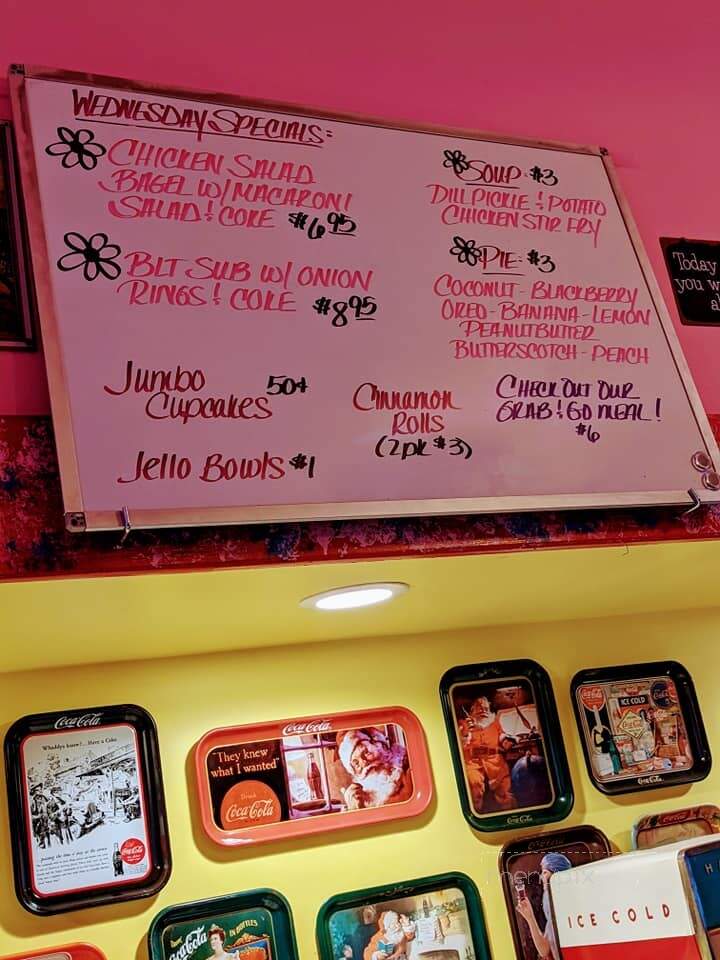 WEDNESDAY SPECIALS:
CHICKEN SALAD
BAGEL W/ MACARONI
SALAD & COKE $6.95
BLT SUB W/ ONION
RINGS & COKE $8.95
SOUP - $3
DILL PICKLE & POTATO
CHICKEN STIR FRY
PIE - $3
COCONUT - BLACKBERRY
OREO - BANANA - LEMON
PEANUTBUTTER
BUTTERSCOTCH - PEACH
Jumbo 50¢
Cupcakes
Jello Bowls $1
Cinnamon
Rolls
(2pk $3)
CHECK OUT OUR
GRAB & GO MEAL!
$6
Today
you w
a
Coca-Cola
Whaddya know!.. Have a Coke
Coca-Cola
Coca-Cola
"They knew
what I wanted"
Drink
Coca-Cola
Coca-Cola
ICE COLD
Coca-Cola
Coca-Cola
IN BOTTLES
ICE COLD